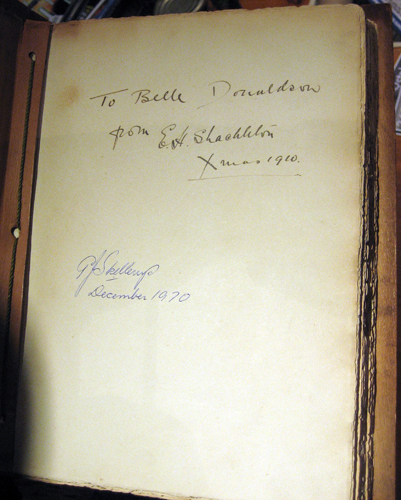 To Belle Donaldson
from E.H. Shackleton
Xmas 1910.
December 1970